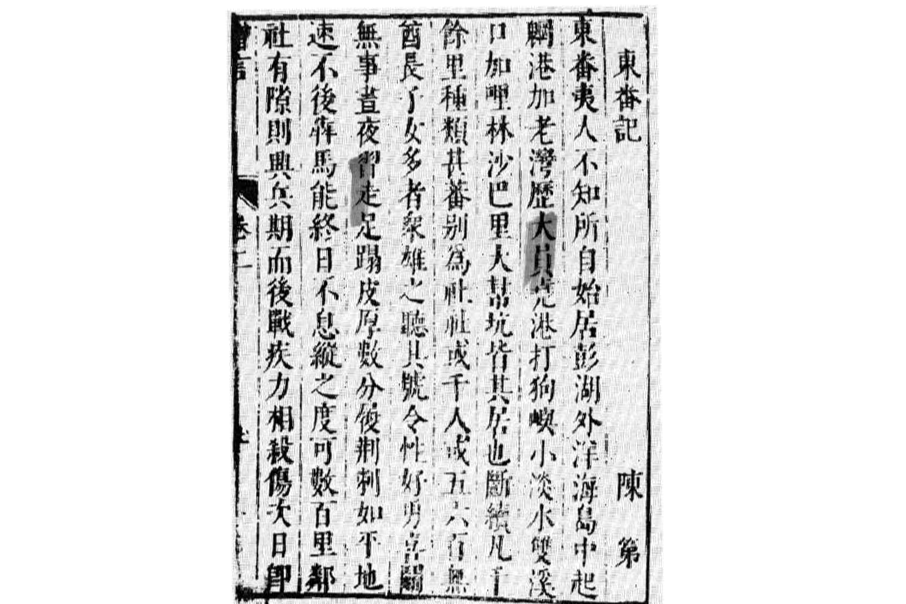 東番記 陳第
東番夷人不知所自始居彭湖外洋海島中起
魍港加老灣歷大員堯港打狗嶼小淡水雙溪
口加哩林沙巴里大幫坑皆其居也斷續凡千
餘里種類甚蕃別為社社或千人或五六百無
酋長子女多者眾雄之聽其號令性好勇喜鬬
無事晝夜習走足蹋皮厚數分履荊刺如平地
速不後犇馬能終日不息縱之度可數百里鄰
社有隙則興兵期而後戰疾力相殺傷次日卽